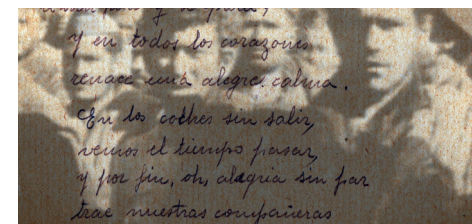 y se para,
y en todos los corazones
renace una alegre calma.
En los coches sin salir,
vemos el tiempo pasar,
y por fin, oh, alegria sin par
trae nuestras compañeras